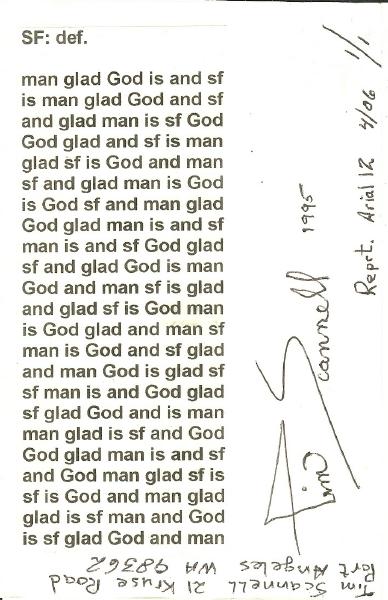 SF: def.
man glad God is and sf
is man glad God and sf
and glad man is sf God
God glad and sf is man
glad sf is God and man
sf and glad man is God
is God sf and man glad
God glad man is and sf
man is and sf God glad
sf and glad God is man
God and man sf is glad
and glad sf is God man
is God glad and man sf
man is God and sf glad
and man God is glad sf
sf man is and God glad
sf glad God and is man
man glad is sf and God
God glad man is and sf
and God man glad sf is
sf is God and man glad
glad is sf man and God
is sf glad God and man
Tim Scannell 1995
Reprt. Arial 12 4/06 1/1
Tim Scannell 21 Kruse Road
Port Angeles WA 98362